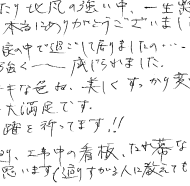 たり北風の強い中、一生懸
本当にありがとうございまし
家の中で過ごして居りましたの…
強く〜感じられました。
キな色ね、美しくすっかり変
大満足です。
躍を祈ってます!!
り、工事中の看板、たれ幕な
思います(通りすがる人に教えてる